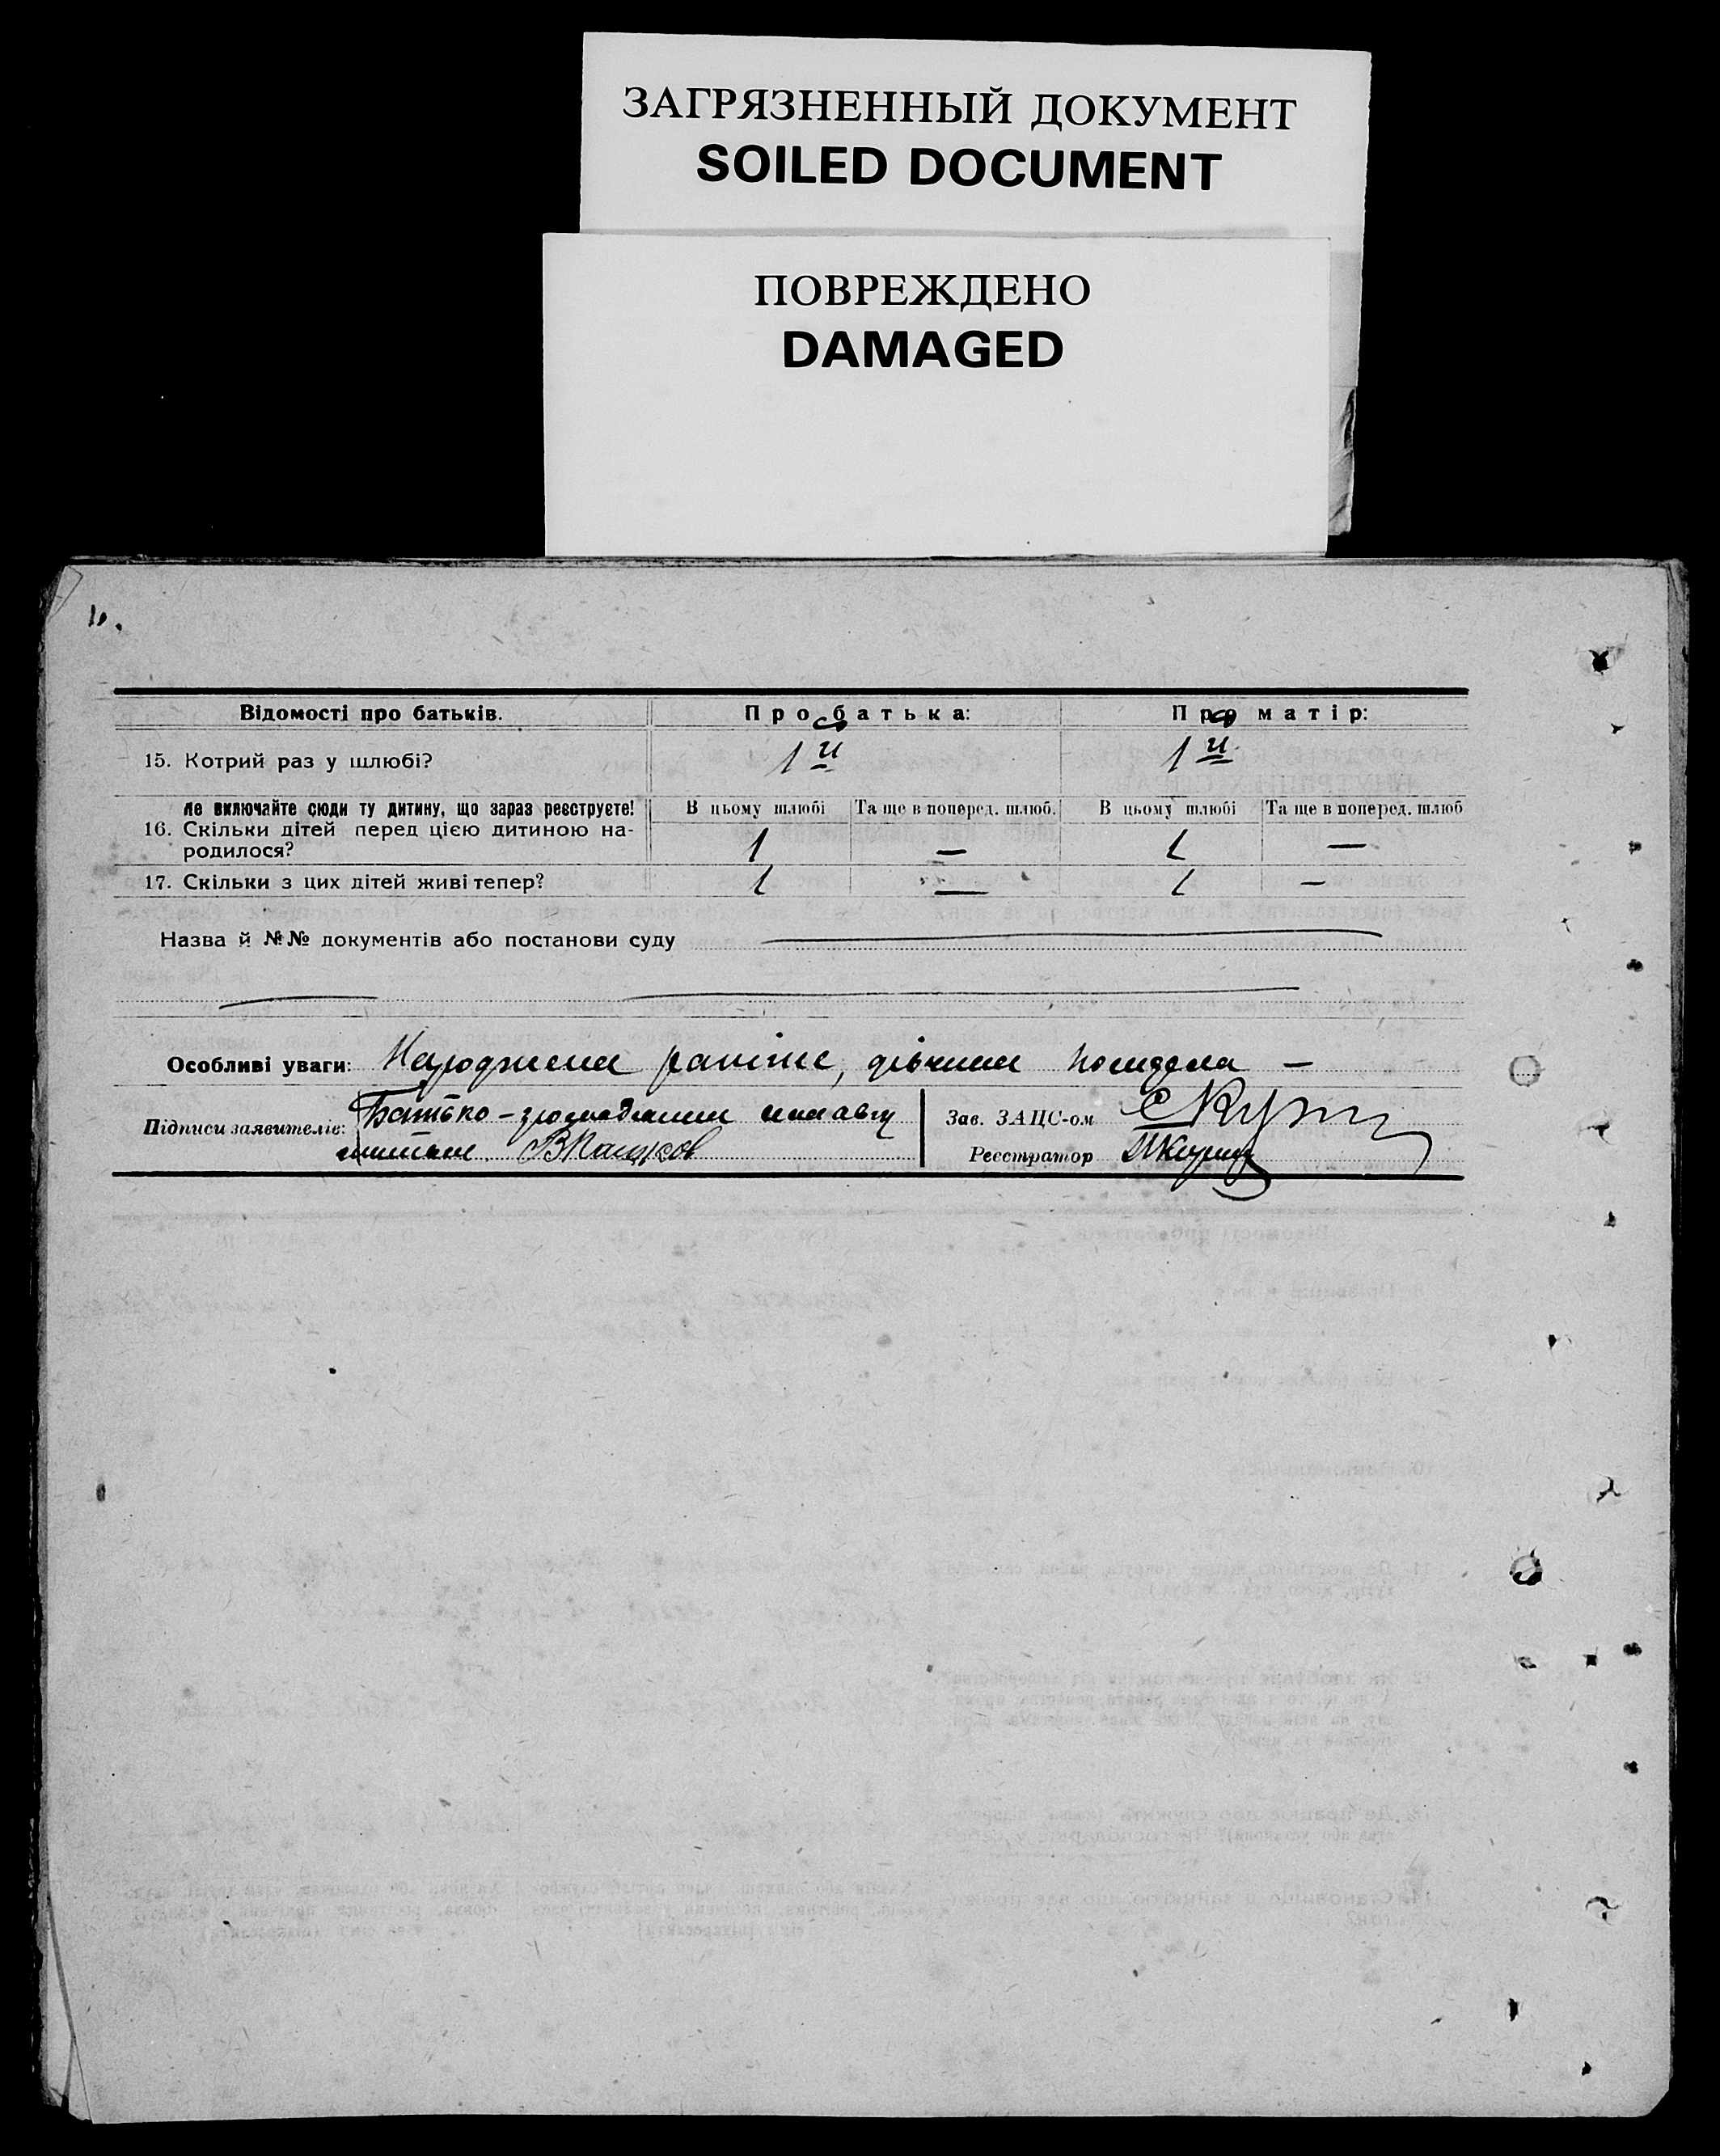 ЗАГРЯЗНЕННЫЙ ДОКУМЕНТ
SOILED DOCUMENT
ПОВРЕЖДЕНО
DAMAGED
Відомості про батьків. Про батька: Про матір:
15. Котрий раз у шлюбі? 1й 1й
Не включайте сюди ту дитину, що зараз реєструєте! В цьому шлюбі Та ще в поперед. шлюб. В цьому шлюбі Та ще в поперед. шлюб
16. Скільки дітей перед цією дитиною на-
родилося? 1 — 1 —
17. Скільки з цих дітей живі тепер? 1 — 1 —
Назва й №№ документів або постанови суду
Особливі уваги:
Підписи заявителів: Батько - Зав. ЗАЦС-ом
Реєстратор